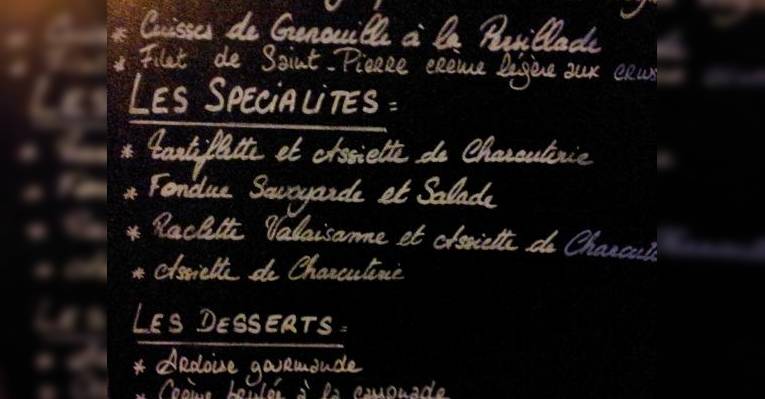 * Cuisses de Grenouille à la Persillade
* Filet de Saint-Pierre crème légère aux crus
LES SPECIALITES :
* Tartiflette et Assiette de Charcuterie
* Fondue Savoyarde et Salade
* Raclette Valaisanne et Assiette de Charcute
* Assiette de Charcuterie
LES DESSERTS :
* Ardoise gourmande
* Crème brulée à la cassonade